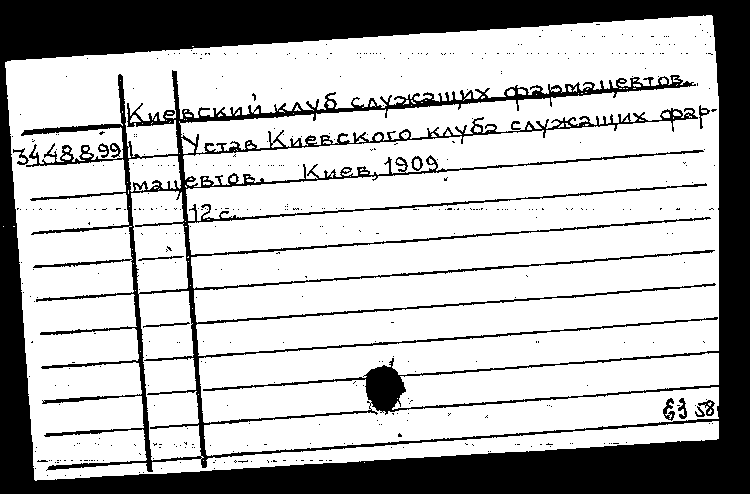 Киевский клуб служащих фармацевтов.
34.48.8.99 1. Устав Киевского клуба служащих фар-
мацевтов. Киев, 1909.
12 с.